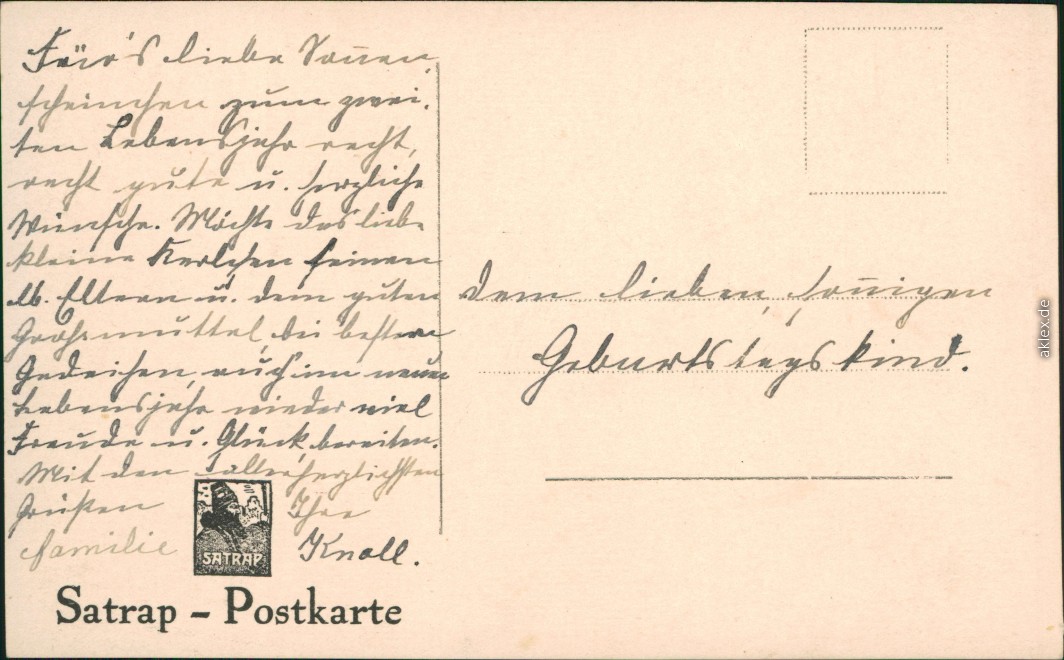 Für's liebe Sonnen-
scheinchen zum zwei-
ten Lebensjahr recht,
recht gute u. herzliche
Wünsche. Möchte das liebe
kleine Kerlchen seinen
lb. Eltern u. dem guten
Großmuttel bei bestem
Gedeihen, auch im neuen
Lebensjahr wieder viel
Freude u. Glück bereiten.
Mit den allerherzlichsten
Grüßen Ihre
Familie Knoll.
SATRAP
Satrap – Postkarte
Dem lieben, sonnigen
Geburtstagskind.
aklex.de